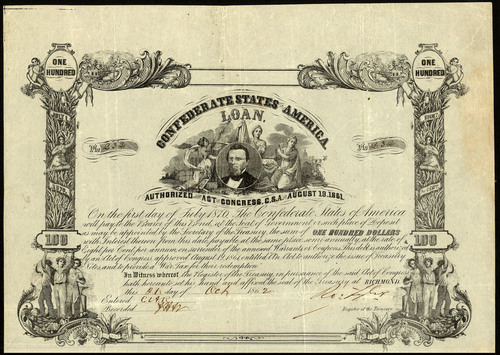 ONE
HUNDRED
ONE
HUNDRED
CONFEDERATE STATES OF AMERICA.
LOAN.
No
No
AUTHORIZED BY ACT OF CONGRESS, C.S.A. AUGUST 19, 1861.
On the first day of July 1870, The Confederate States of America
will pay to the Bearer of this Bond, at the seat of Government or such place of Deposit
as may be appointed by the Secretary of the Treasury, the sum of ONE HUNDRED DOLLARS
with Interest thereon from this date, payable at the same place, semi-annually, at the rate of
Eight per Cent per annum on surrender of the annexed Warrants or Coupons. This debt is authorized
by an Act of Congress approved August 19, 1861, entitled An Act to authorize the issue of Treasury
Notes, and to provide a War Tax for their redemption.
In Witness whereof, the Register of the Treasury, in pursuance of the said Act of Congress
hath hereunto set his hand and affixed the seal of the Treasury at RICHMOND,
this day of Oct 1862
Entered
Recorded
Register of the Treasury
100
100